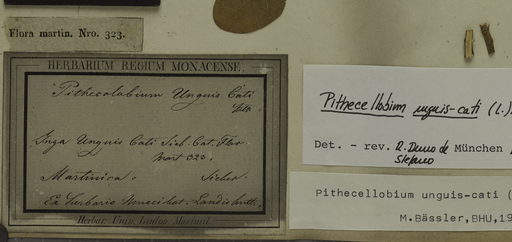 Flora martin. Nro. 323.
HERBARIUM REGIUM MONACENSE.
Pithecolobium Unguis Cati
Inga Unguis Cati Sieb. Cat. Flor.
Mart 323.
Martinica. Sieber.
Ex herbario
Herbar. Univ. Ludov. Maximil.
Pithecellobium unguis-cati (L.)
Det. - rev. R. Duno de München
Stefano
Pithecellobium unguis-cati (
M.Bässler, BHU, 19